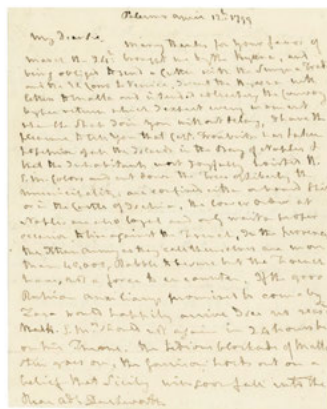 Palermo April 12th 1799
My Dear Sir
Many thanks for your favor of
March the 24th brought me by the Hyæna, and
being obliged to send a Cutter with the
and the St Leon to Venice, I send the Hyæna with
letters to Malta and intended collecting the Convoy
higher which I expect every moment
shall join you without delay, I have the
pleasure to tell you that Capt. Troubridge has taken
possession of all the Islands in the Bay of Naples &
that the Inhabitants most Joyfully hoisted H.
S. My Colors and cut down the Tree of Liberty the
municipality, are confined either on board Ship
or in the Castle of Ischia. the lower order at
Naples are also loyal and only wait a proper
occasion to rise against the French, In the provinces
the Xtian Army as they call themselves are more
than 40,000, Rabble to be sure but the French
have not a force to encounter. If the good
Russian auxiliarys promised to come by
Zara would happily arrive I was not
would not again in 24 hours be
on his Throne. the tedious blockade of Malta
still goes on, the Garrison holds out on a
belief that Sicily will soon fall into the
Rear Adl Duckworth